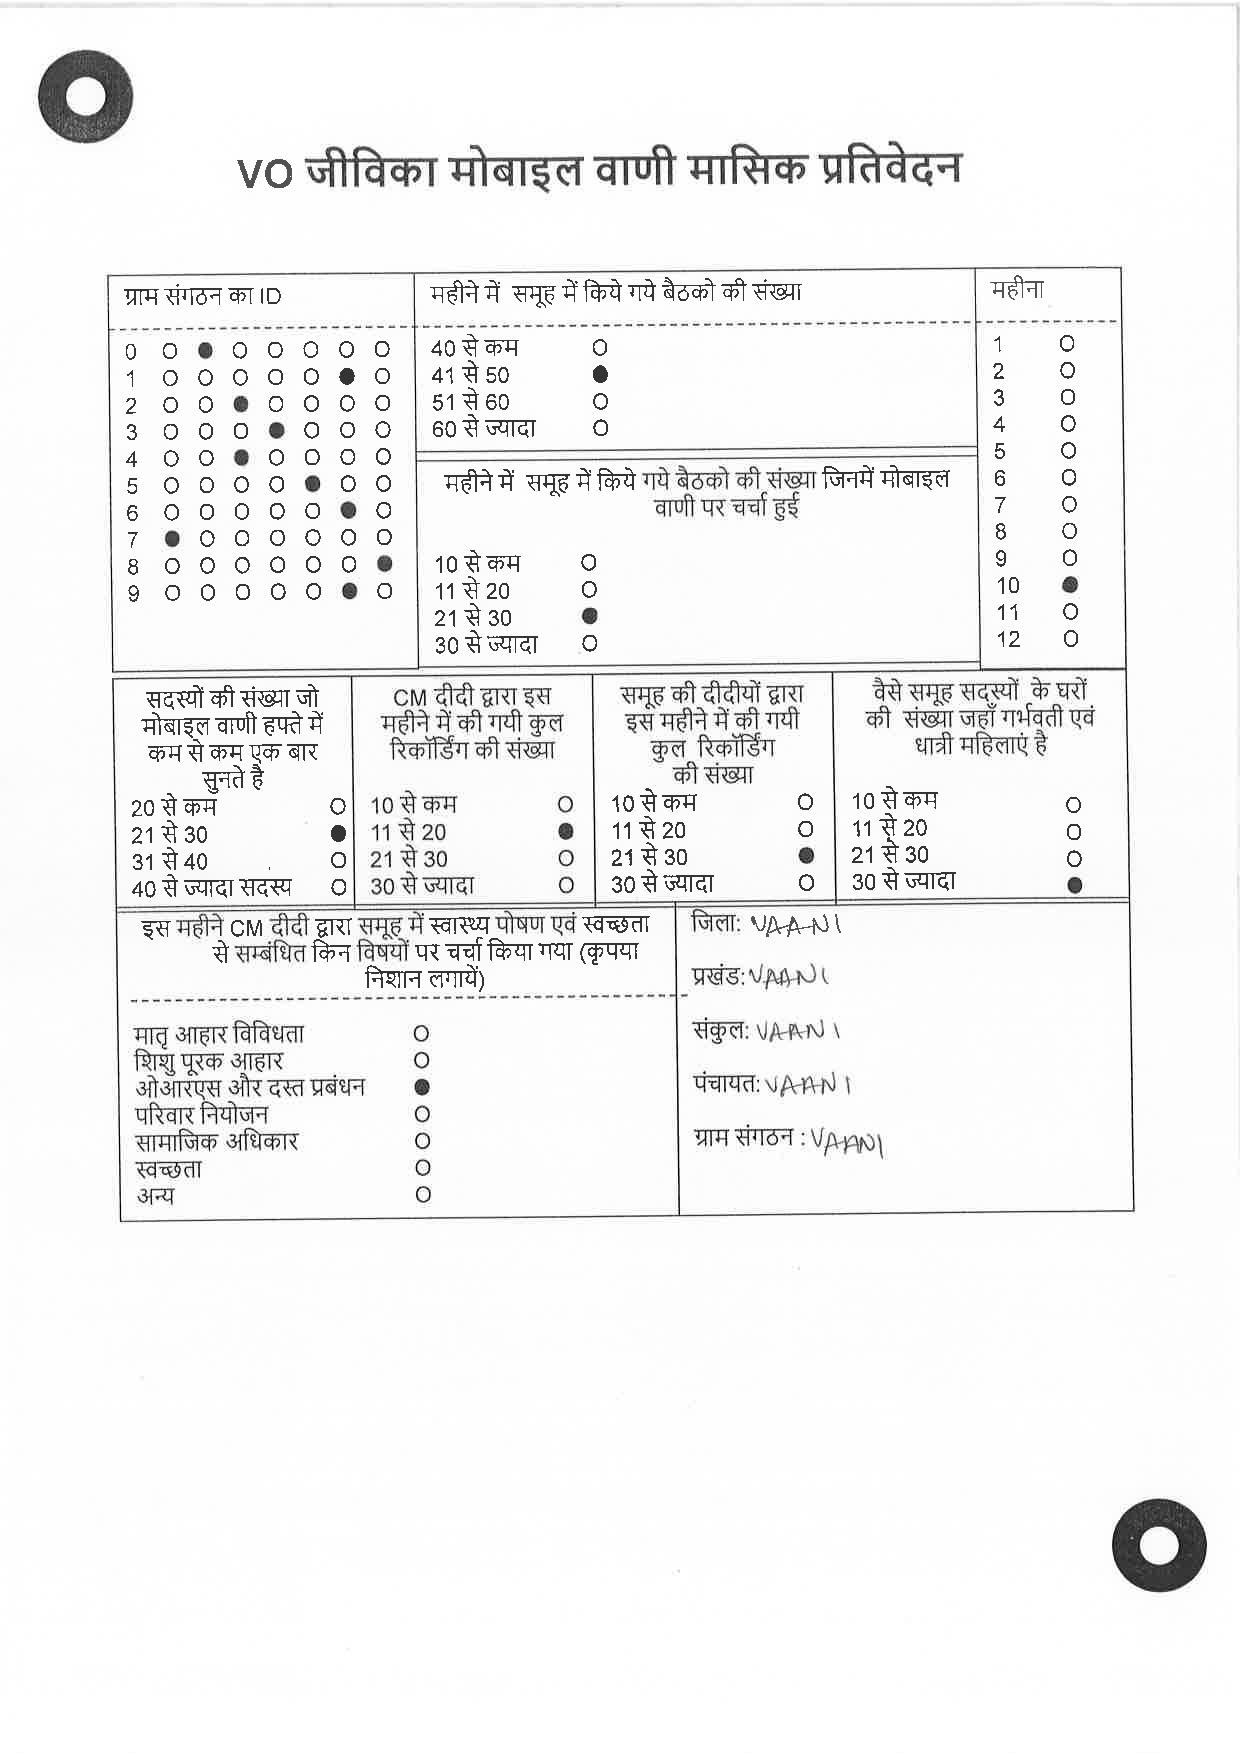 VO जीविका मोबाइल वाणी मासिक प्रतिवेदन
ग्राम संगठन का ID
0
1
2
3
4
5
6
7
8
9
महीने में समूह में किये गये बैठको की संख्या
40 से कम
41 से 50
51 से 60
60 से ज्यादा
महीने में समूह में किये गये बैठको की संख्या जिनमें मोबाइल
वाणी पर चर्चा हुई
10 से कम
11 से 20
21 से 30
30 से ज्यादा
महीना
1
2
3
4
5
6
7
8
9
10
11
12
सदस्यों की संख्या जो
मोबाइल वाणी हफ्ते में
कम से कम एक बार
सुनते है
20 से कम
21 से 30
31 से 40
40 से ज्यादा सदस्य
CM दीदी द्वारा इस
महीने में की गयी कुल
रिकॉर्डिंग की संख्या
10 से कम
11 से 20
21 से 30
30 से ज्यादा
समूह की दीदीयों द्वारा
इस महीने में की गयी
कुल रिकॉर्डिंग
की संख्या
10 से कम
11 से 20
21 से 30
30 से ज्यादा
वैसे समूह सदस्यों के घरों
की संख्या जहाँ गर्भवती एवं
धात्री महिलाएं है
10 से कम
11 से 20
21 से 30
30 से ज्यादा
इस महीने CM दीदी द्वारा समूह में स्वास्थ्य पोषण एवं स्वच्छता
से सम्बंधित किन विषयों पर चर्चा किया गया (कृपया
निशान लगायें)
मातृ आहार विविधता
शिशु पूरक आहार
ओआरएस और दस्त प्रबंधन
परिवार नियोजन
सामाजिक अधिकार
स्वच्छता
अन्य
जिला: VAANI
प्रखंड: VAANI
संकुल: VAANI
पंचायत: VAANI
ग्राम संगठन : VAANI